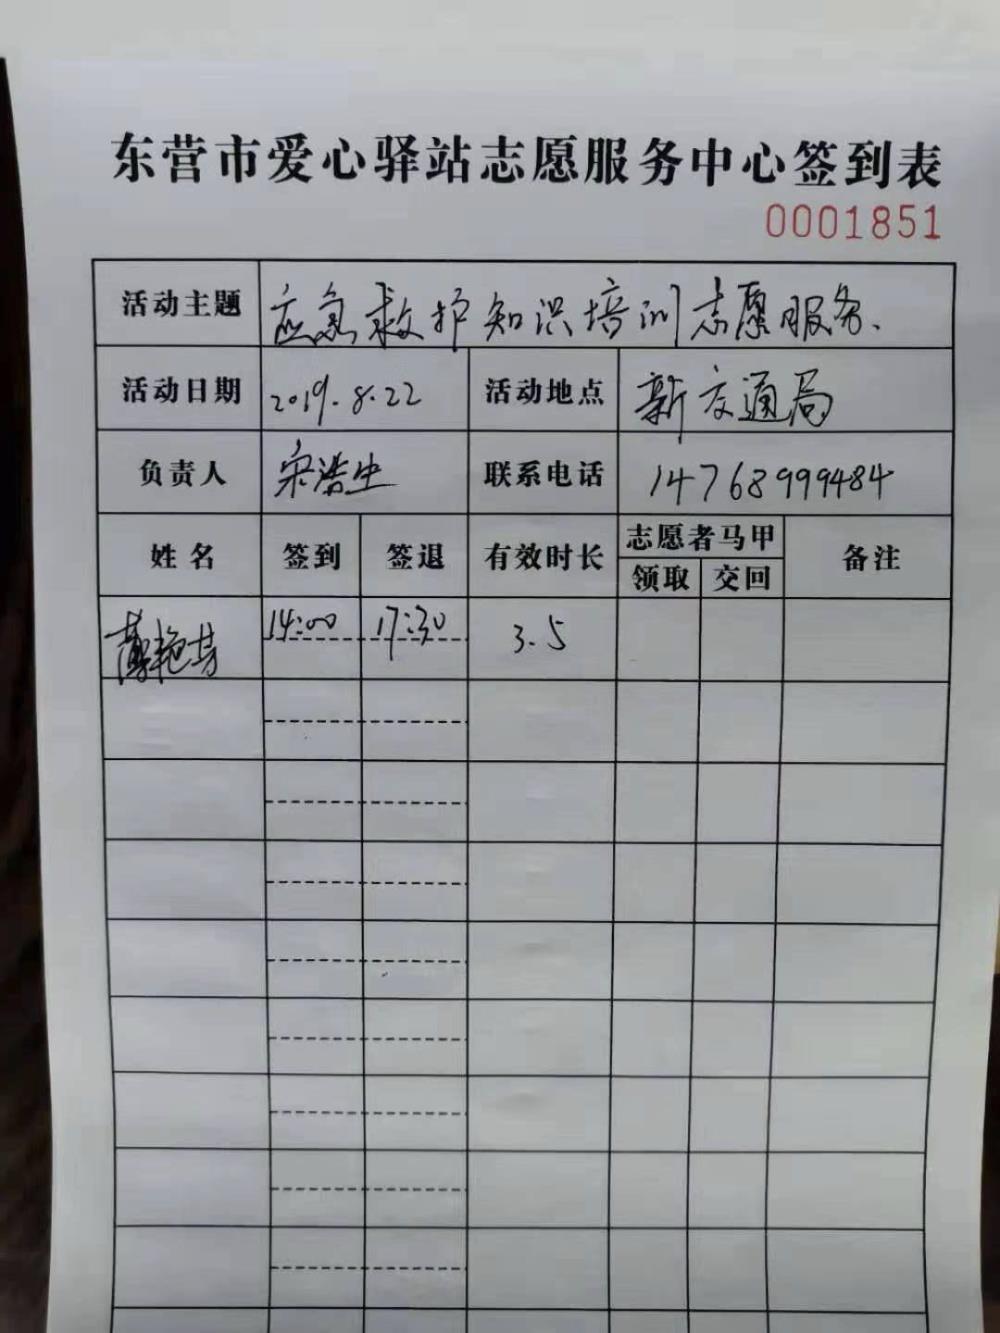 东营市爱心驿站志愿服务中心签到表
0001851
活动主题 应急救护知识培训志愿服务、
活动日期 2019.8.22 活动地点 新交通局
负责人 宋浩生 联系电话 14768999484
姓名 签到 签退 有效时长 志愿者马甲 备注
领取 交回
薄艳芳 14:00 17:30 3.5